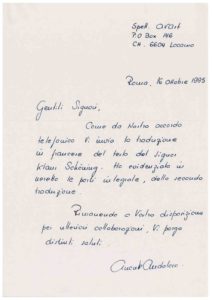 Spett. AVArt
P.O Box 146
CH. 6604 Locarno
Roma, 16 ottobre 1995
Gentili Signori,
Come da nostro accordo
telefonico Vi invio la traduzione
in francese del testo del Signor
Klaus Schöning. Ho evidenziato in
neretto le parti integrate, della seconda
traduzione.
Rimanendo a Vostra disposizione
per ulteriori collaborazioni, Vi porgo
distinti saluti.